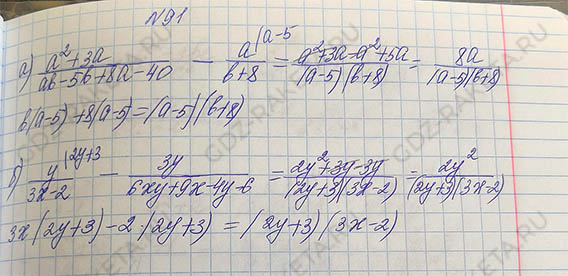 N91
а) (a²+3a)/(ab-5b+8a-40) - a/(b+8) |a-5 = (a²+3a-a²+5a)/((a-5)(b+8)) = 8a/((a-5)(b+8))
b(a-5)+8(a-5)=(a-5)(b+8)
б) y/(3x-2) |2y+3 - 3y/(6xy+9x-4y-6) = (2y²+3y-3y)/((2y+3)(3x-2)) = 2y²/((2y+3)(3x-2))
3x(2y+3)-2·(2y+3) = (2y+3)(3x-2)